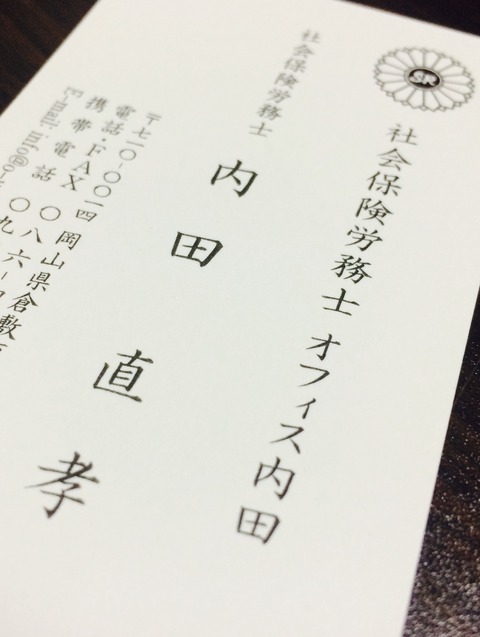 SR
社会保険労務士 オフィス内田
社会保険労務士
内田 直孝
〒七一〇-〇〇一四 岡山県倉敷
電話・FAX 〇八六-
携帯電話 〇九
E-mail: info@o-